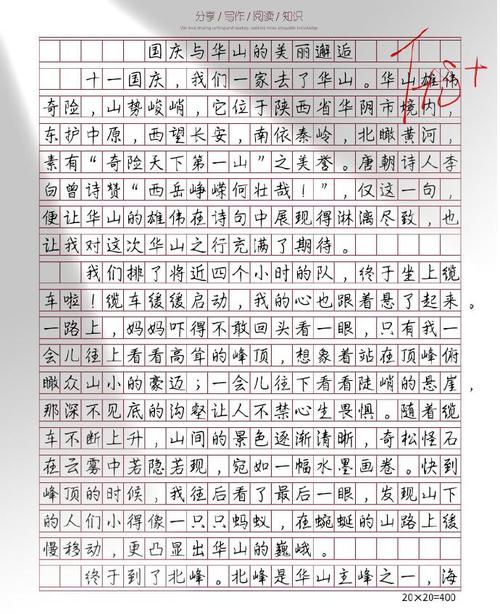 分享/写作/阅读/知识
国庆与华山的美丽邂逅
十一国庆，我们一家去了华山。华山雄伟
奇险，山势峻峭，它位于陕西省华阴市境内，
东护中原，西望长安，南依秦岭，北瞰黄河，
素有“奇险天下第一山”之美誉。唐朝诗人李
白曾诗赞“西岳峥嵘何壮哉！”，仅这一句，
便让华山的雄伟在诗句中展现得淋漓尽致，也
让我对这次华山之行充满了期待。
我们排了将近四个小时的队，终于坐上缆
车啦！缆车缓缓启动，我的心也跟着悬了起来。
一路上，妈妈吓得不敢回头看一眼，只有我一
会儿往上看看高耸的峰顶，想象着站在顶峰俯
瞰众山小的豪迈；一会儿往下看看陡峭的悬崖，
那深不见底的沟壑让人不禁心生畏惧。随着缆
车不断上升，山间的景色逐渐清晰，奇松怪石
在云雾中若隐若现，宛如一幅水墨画卷。快到
峰顶的时候，我往后看了最后一眼，发现山下
的人们小得像一只只蚂蚁，在蜿蜒的山路上缓
慢移动，更凸显出华山的巍峨。
终于到了北峰。北峰是华山主峰之一，海
20×20=400